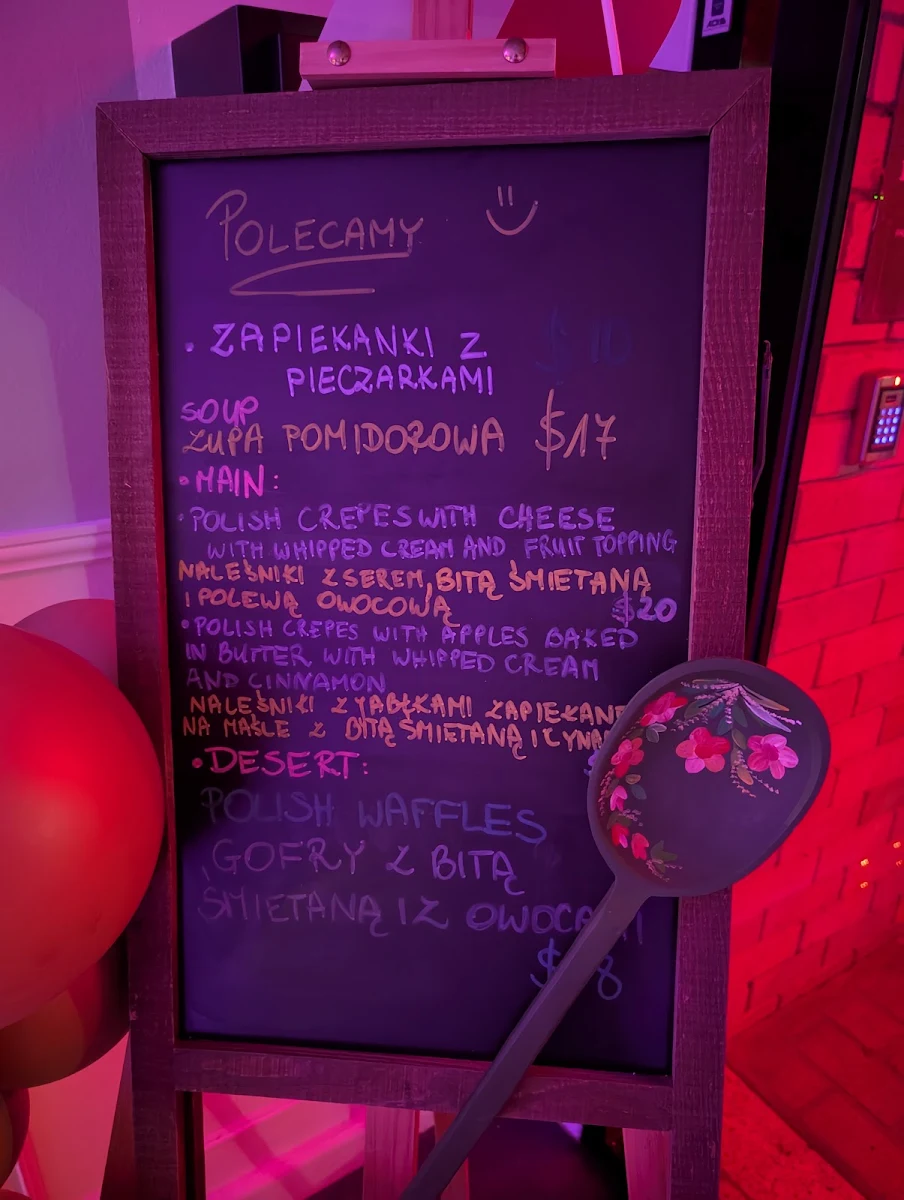 POLECAMY
• ZAPIEKANKI Z $10
PIECZARKAMI
SOUP
ZUPA POMIDOROWA $17
• MAIN:
• POLISH CREPES WITH CHEESE
WITH WHIPPED CREAM AND FRUIT TOPPING
NALEŚNIKI Z SEREM, BITĄ ŚMIETANĄ
I POLEWĄ OWOCOWĄ $20
• POLISH CREPES WITH APPLES BAKED
IN BUTTER WITH WHIPPED CREAM
AND CINNAMON
NALEŚNIKI Z JABŁKAMI
NA MAŚLE Z BITĄ ŚMIETANĄ I
• DESERT:
POLISH WAFFLES
GOFRY Z BITĄ
ŚMIETANĄ I Z